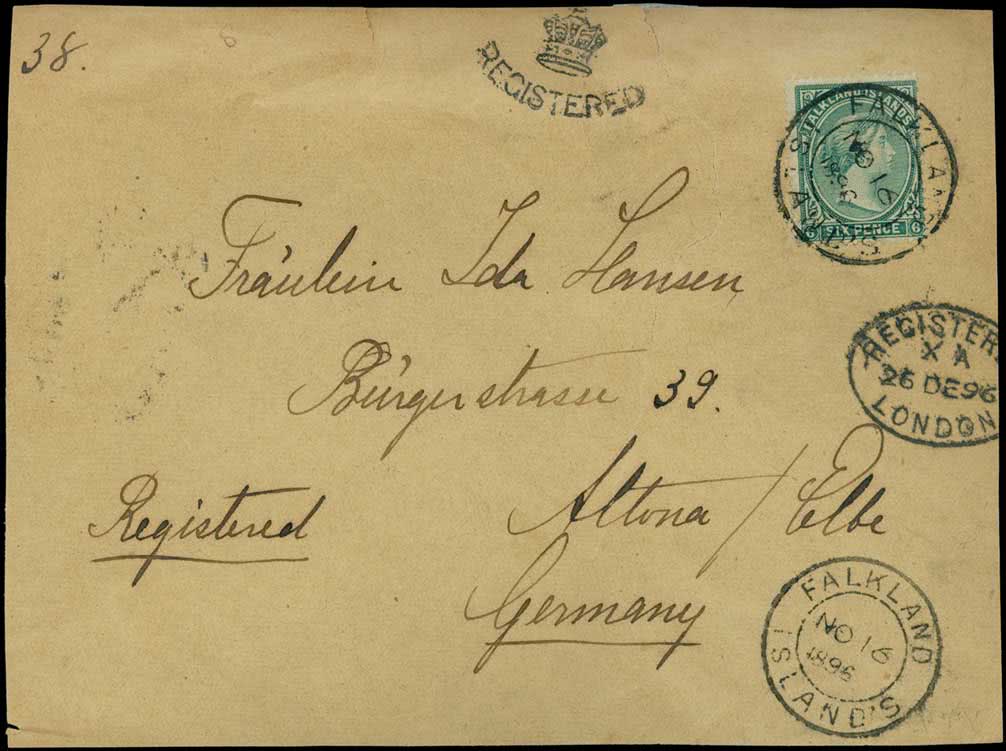 38.
REGISTERED
FALKLAND ISLANDS
SIX PENCE
FALKLAND ISLAND'S
NO 16
1896
Fräulein Ida Hansen
REGISTER
X A
26 DE 96
LONDON
Bürgerstrasse 39.
Registered
Altona / Elbe
Germany
FALKLAND ISLAND'S
NO 16
1896